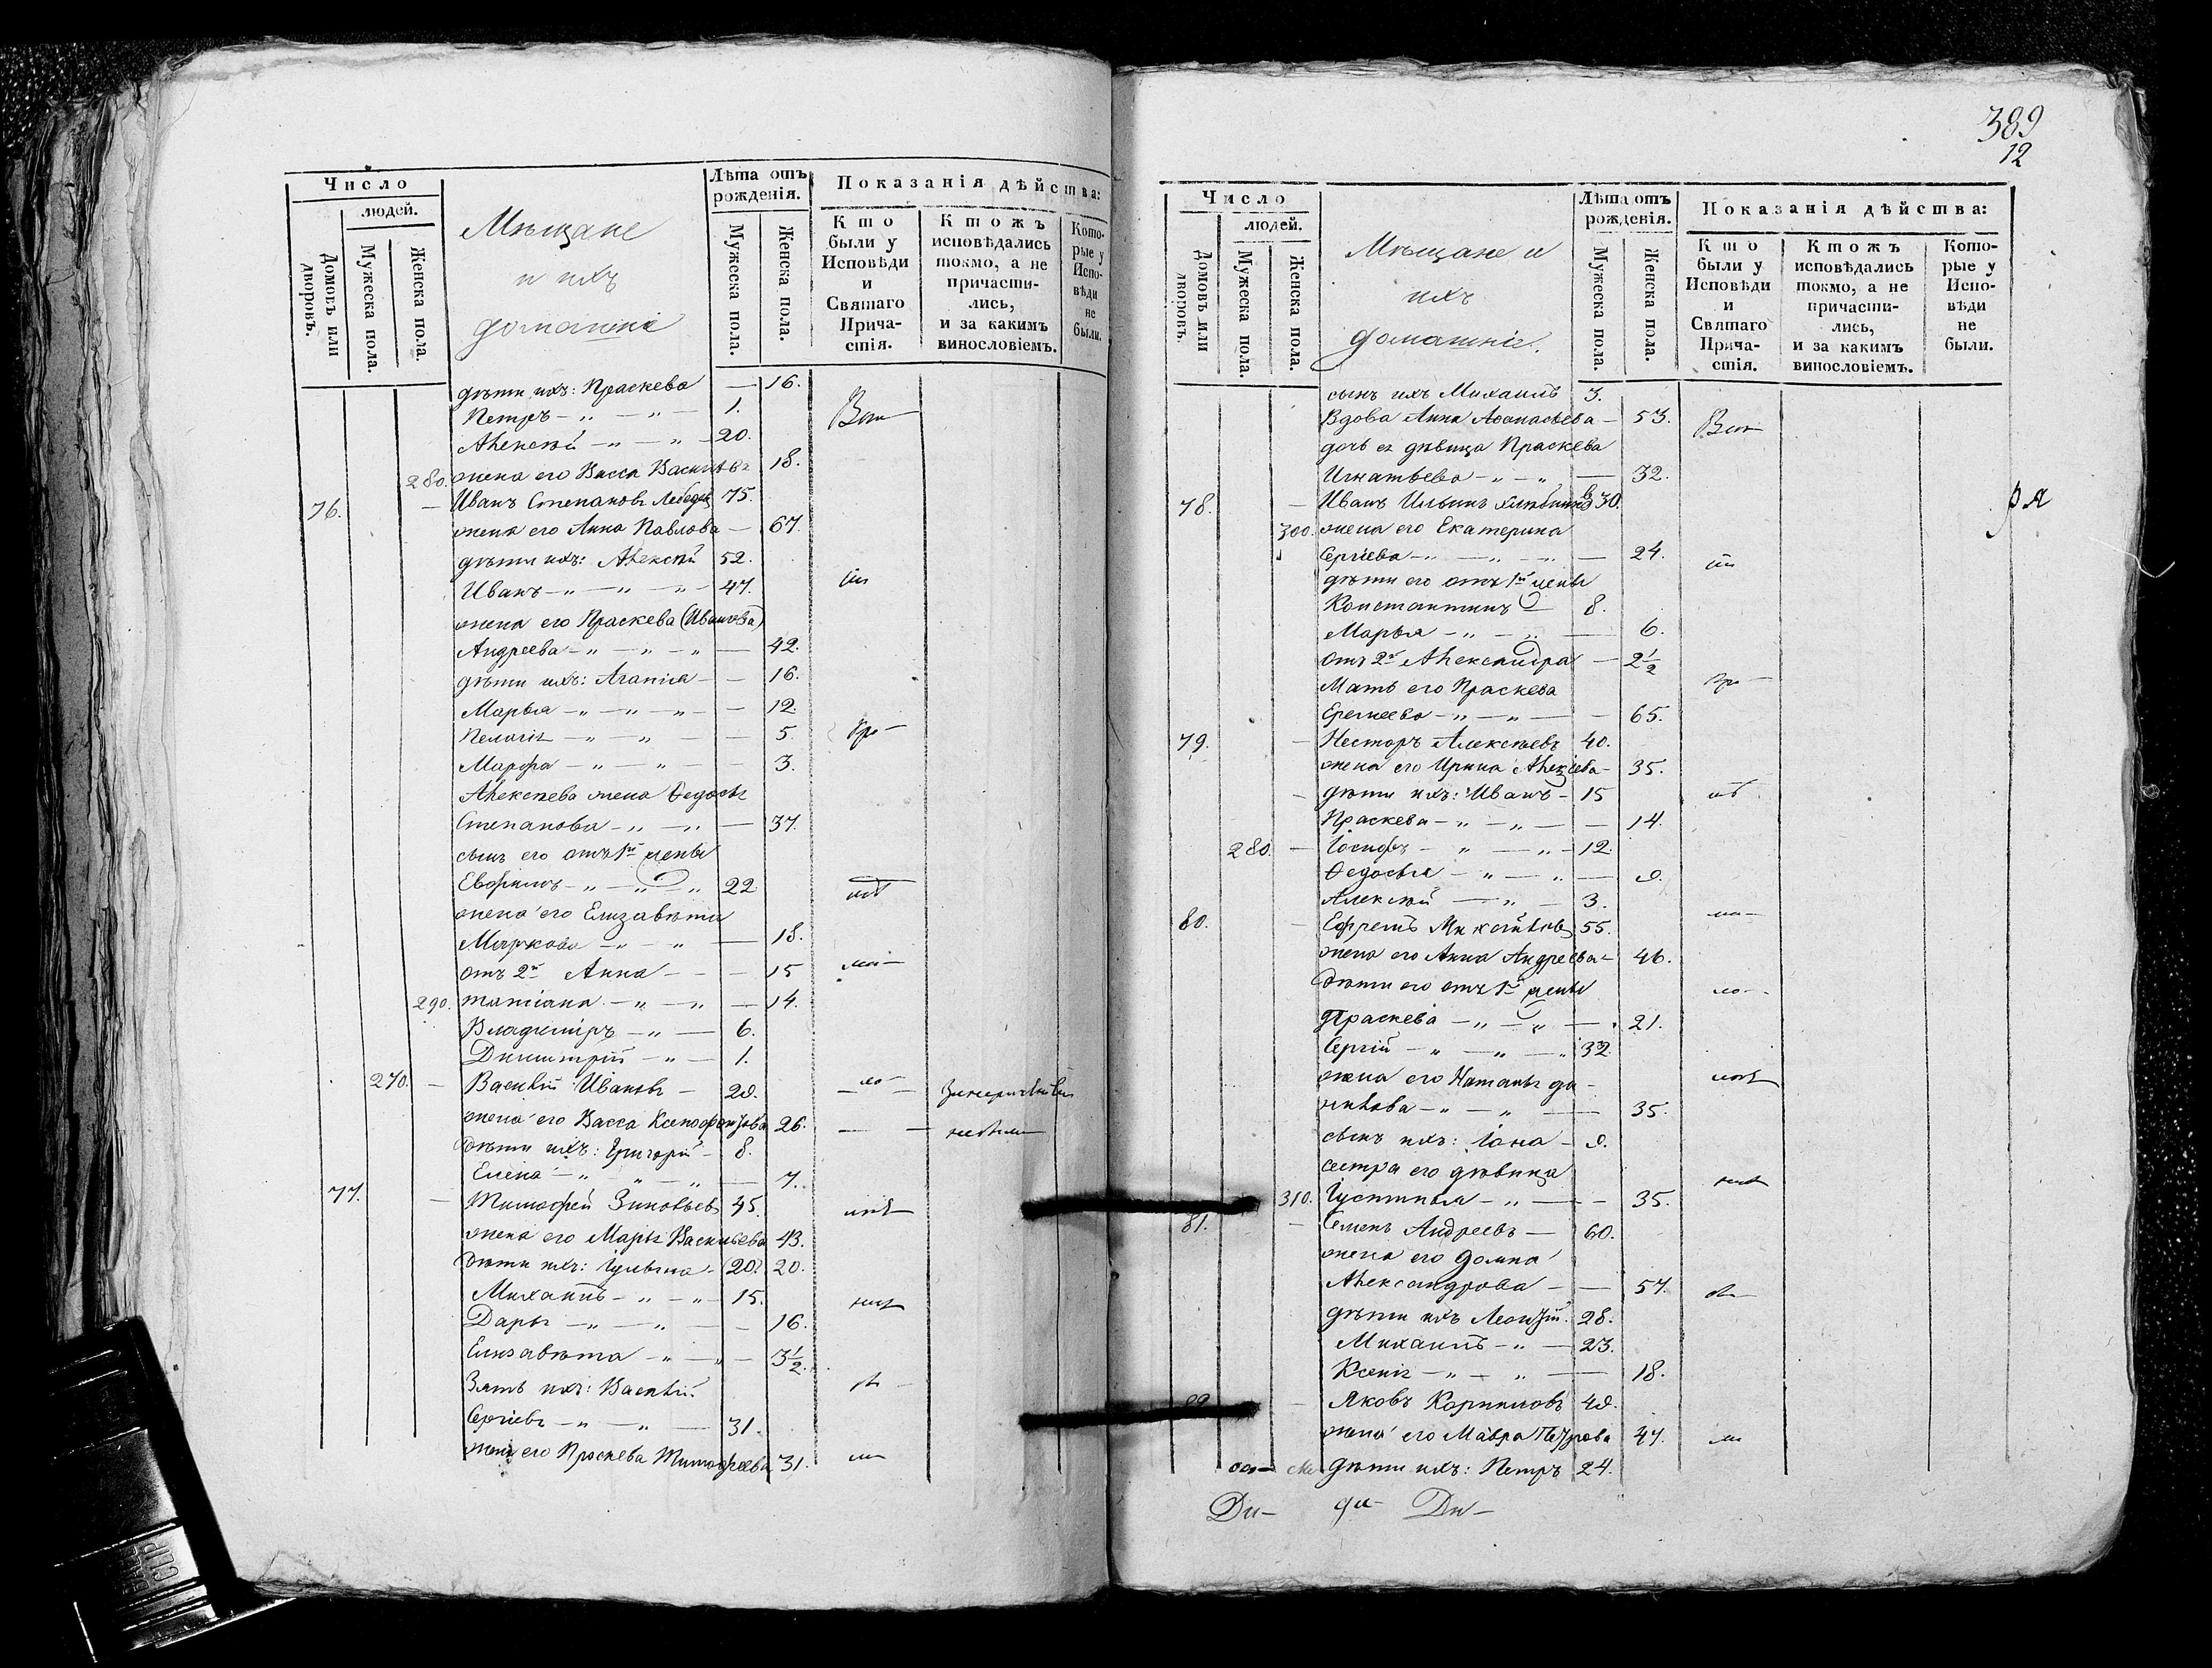 Число
людей.
Домовъ или дворовъ.
Мужеска пола.
Женска пола.
Мѣщане
и ихъ
домашніе
Лѣта отъ рожденія.
Мужеска пола.
Женска пола.
Показанія дѣйства:
Кто были у Исповѣди и Святаго Причастія.
Ктожъ исповѣдались токмо, а не причастились, и за какимъ винословіемъ.
Которые у Исповѣди не были.
дѣти ихъ: Праскева — 16.
Петръ — „ — „ — 1.
Алексѣй — „ — „ — 20.
280. жена его Васса 18.
76. — Иванъ Степановъ Лебедевъ 75.
жена его Анна Павлова — 67.
дѣти ихъ: Алексѣй 52.
Иванъ — „ — „ — „ — 47.
жена его Праскева (Иванова)
Андреева — „ — „ — „ — 42.
дѣти ихъ: Агапія — — 16.
Марья — „ — „ — „ — — 12.
Пелагія — „ — „ — — 5.
Марфа — „ — „ — — 3.
Алексѣева жена Ѳедосья
Степанова — „ — „ — 37.
сынъ его отъ 1й жены
Евфимъ — „ — „ — „ 22
жена его Елизавѣта
Маркова — „ — „ — 18.
отъ 2й Анна — — — 15
290. Татіана — „ — „ — 14.
Владиміръ — „ — 6.
Димитрій — „ — 1.
270. — Василій Ивановъ — 29.
жена его Васса Ксенофонтова 26.
дѣти ихъ: Григорій — 8.
Елена — „ — „ — „ — 7.
77. — Тимофей Зиновьевъ 45.
жена его Марья Васильева 43.
дѣти ихъ: Іульяна — (20) 20.
Михаилъ — „ — „ — 15.
Дарья — „ — „ — — 16.
Елизавѣта — „ — „ — 3½.
Зять ихъ: Василій
Сергіевъ — „ — „ — 31.
жена его Праскева Тимофеева 31.
389
12
Число
людей.
Домовъ или дворовъ.
Мужеска пола.
Женска пола.
Мѣщане и
ихъ
домашніе.
Лѣта отъ рожденія.
Мужеска пола.
Женска пола.
Показанія дѣйства:
Кто были у Исповѣди и Святаго Причастія.
Ктожъ исповѣдались токмо, а не причастились, и за какимъ винословіемъ.
Которые у Исповѣди не были.
сынъ ихъ Михаилъ 3.
Вдова Анна Аѳанасьева — 53.
дочь ея дѣвица Праскева
Игнатьева — „ — „ — 32.
78. — Иванъ Ильинъ 30.
300. жена его Екатерина
Сергіева — „ — „ — „ — 24.
дѣти его отъ 1й жены
Константинъ — 8.
Марья — „ — „ — 6.
отъ 2й Александра — 2½
Мать его Праскева
Еремеева — „ — „ — — 65.
79. — Несторъ Алексѣевъ 40.
жена его Ирина 35.
— дѣти ихъ: Иванъ — 15
Праскева — „ — „ — — 14.
280. — Іосифъ — „ — „ — 12.
Ѳедосья — „ — „ — 9.
Алексѣй — „ — 3.
80. — Ефремъ 55.
жена его Анна Андреева — 46.
дѣти его отъ 1й жены
Праскева — „ — „ — 21.
Сергій — „ — „ — „ 32.
жена его Наталья Да-
нилова — „ — „ — 35.
сынъ ихъ: Іона — 9.
сестра его дѣвица
310. Іустинья — „ — — 35.
81. — Семенъ Андреевъ — 60.
жена его Домна
Александрова — — 57.
дѣти ихъ Леонтій. 28.
Михаилъ — „ — 23.
Ксенія — „ — „ — 18.
— Яковъ 49.
жена его Мавра Петрова 47.
дѣти ихъ: Петръ 24.